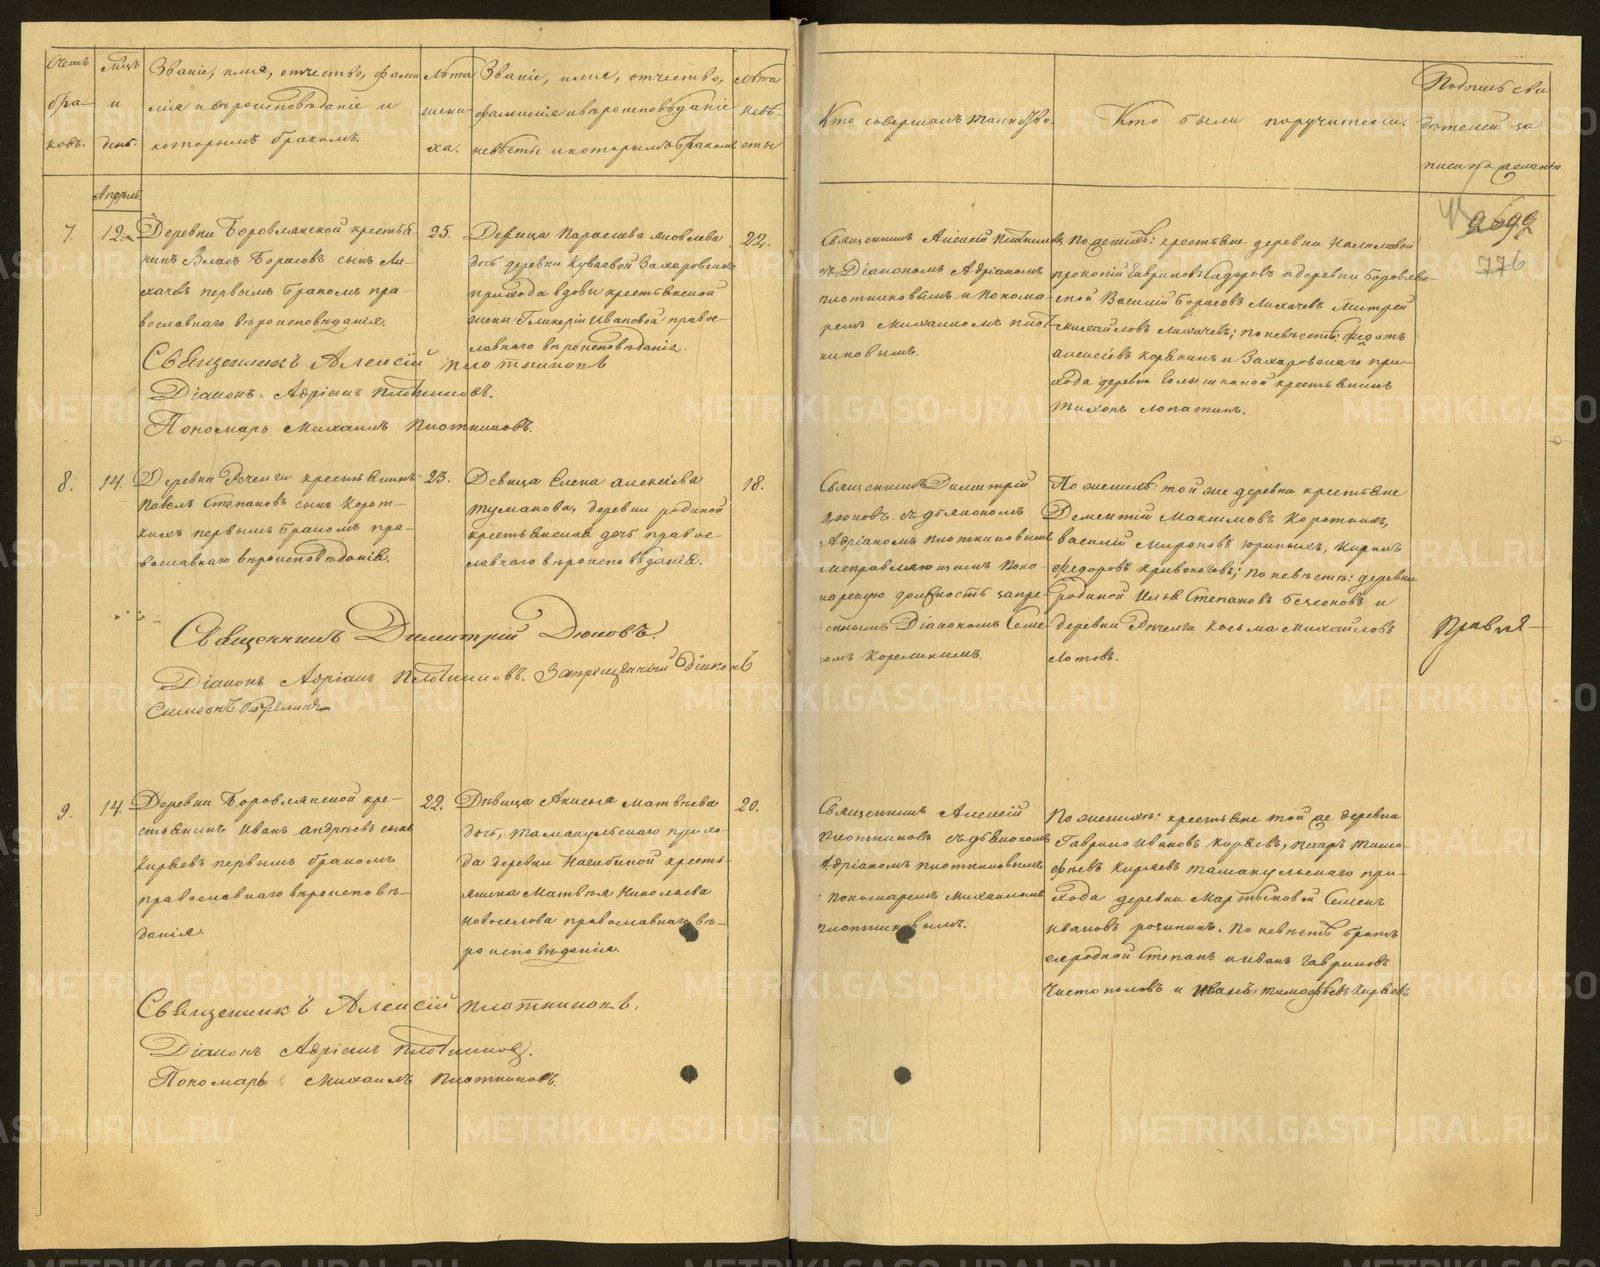 Счетъ
бра-
ковъ.
Мѣсяцъ
и
день.
Званіе, имя, отчество, фами
лія и вѣроисповѣданіе и
которымъ бракомъ.
Лѣта
жени-
ха.
Званіе, имя, отчество,
фамилія и вѣроисповѣданіе
невѣсты и которымъ бракомъ
Лѣта
невѣ-
сты
Кто совершалъ таинство.
Кто были поручители.
Подпись сви
дѣтелей за
писи по желанію
Апрѣль
7.
12.
Деревни Боровлянской крестья
нинъ Власъ Борисовъ сынъ Ли-
хачевъ первымъ бракомъ пра-
вославнаго вѣроисповѣданія.
25.
Девица Параскева Яковлева
дочь деревни Куваевой Захаровскаго
прихода вдовы крестьянской
жены Гликеріи Ивановой правос-
лавнаго вѣроисповѣданія.
22.
Священникъ Алексій Плотниковъ
съ Діакономъ Адріаномъ
Плотниковымъ и Понома-
ремъ Михаиломъ Плот-
никовымъ.
По женихѣ: крестьяне деревни
Прокопій Гавриловъ Сидоровъ и деревни Боровлян-
ской Василій Борисовъ Лихачевъ Митрей
Михайловъ Лихачевъ; по невѣстѣ: Федотъ
Алексіевъ и Захаровскаго при-
хода деревни крестьянинъ
Тихонъ Лопатинъ.
776
Священникъ Алексій Плотниковъ
Діаконъ Адріанъ Плотниковъ.
Пономарь Михаилъ Плотниковъ.
8.
14.
Деревни Рѣчелги крестьянинъ
Павелъ Степановъ сынъ Корот-
кихъ первымъ бракомъ пра-
вославнаго вѣроисповѣданія.
23.
Девица Елена Алексіева
Туманова, деревни Родиной
крестьянская дочь правос-
лавнаго вѣроисповѣданія.
18.
Священникъ Димитрій
Дюковъ съ діакономъ
Адріаномъ Плотниковымъ
исправляющимъ поно-
марскую должность запре-
щеннымъ Діакономъ Симе-
ономъ Карелинымъ
По женихѣ: той же деревни крестьяне
Дементій Максимовъ Короткихъ,
Василій Мироновъ Юриныхъ, Кирилъ
Федоровъ Кривоноговъ; по невѣстѣ: деревни
Родиной Илья Степановъ и
деревни Рѣчелги Косьма Михайловъ
Священникъ Димитрій Дюковъ.
Діаконъ Адріанъ Плотниковъ. Запрещенный Діаконъ
Симеонъ Карелинъ
9.
14.
Деревни Боровлянской кре-
стьянинъ Иванъ Андрѣевъ сынъ
Киряевъ первымъ бракомъ
православнаго вѣроисповѣ-
данія.
22.
Дѣвица Анисья Матвѣева
дочь, Тамакульскаго прихо-
да деревни Нагибиной кресть-
янина Матвѣя Николаева
Новоселова православнаго вѣ-
роисповѣданія.
20.
Священникъ Алексій
Плотниковъ съ діакономъ
Адріаномъ Плотниковымъ
и пономаремъ Михаиломъ
Плотниковымъ.
По женихѣ: крестьяне той же деревни
Гаврило Ивановъ Киряевъ, Петръ Тимо-
феевъ Киряевъ Тамакульскаго при-
хода деревни Мартыновой Семенъ
Ивановъ. По невѣстѣ братъ
ея родной Степанъ и Иванъ Гавриловъ
Чистополовъ и Иванъ Тимофѣевъ Киряевъ
Священникъ Алексій Плотниковъ.
Діаконъ Адріанъ Плотниковъ.
Пономарь Михаилъ Плотниковъ.
METRIKI.GASO-URAL.RU